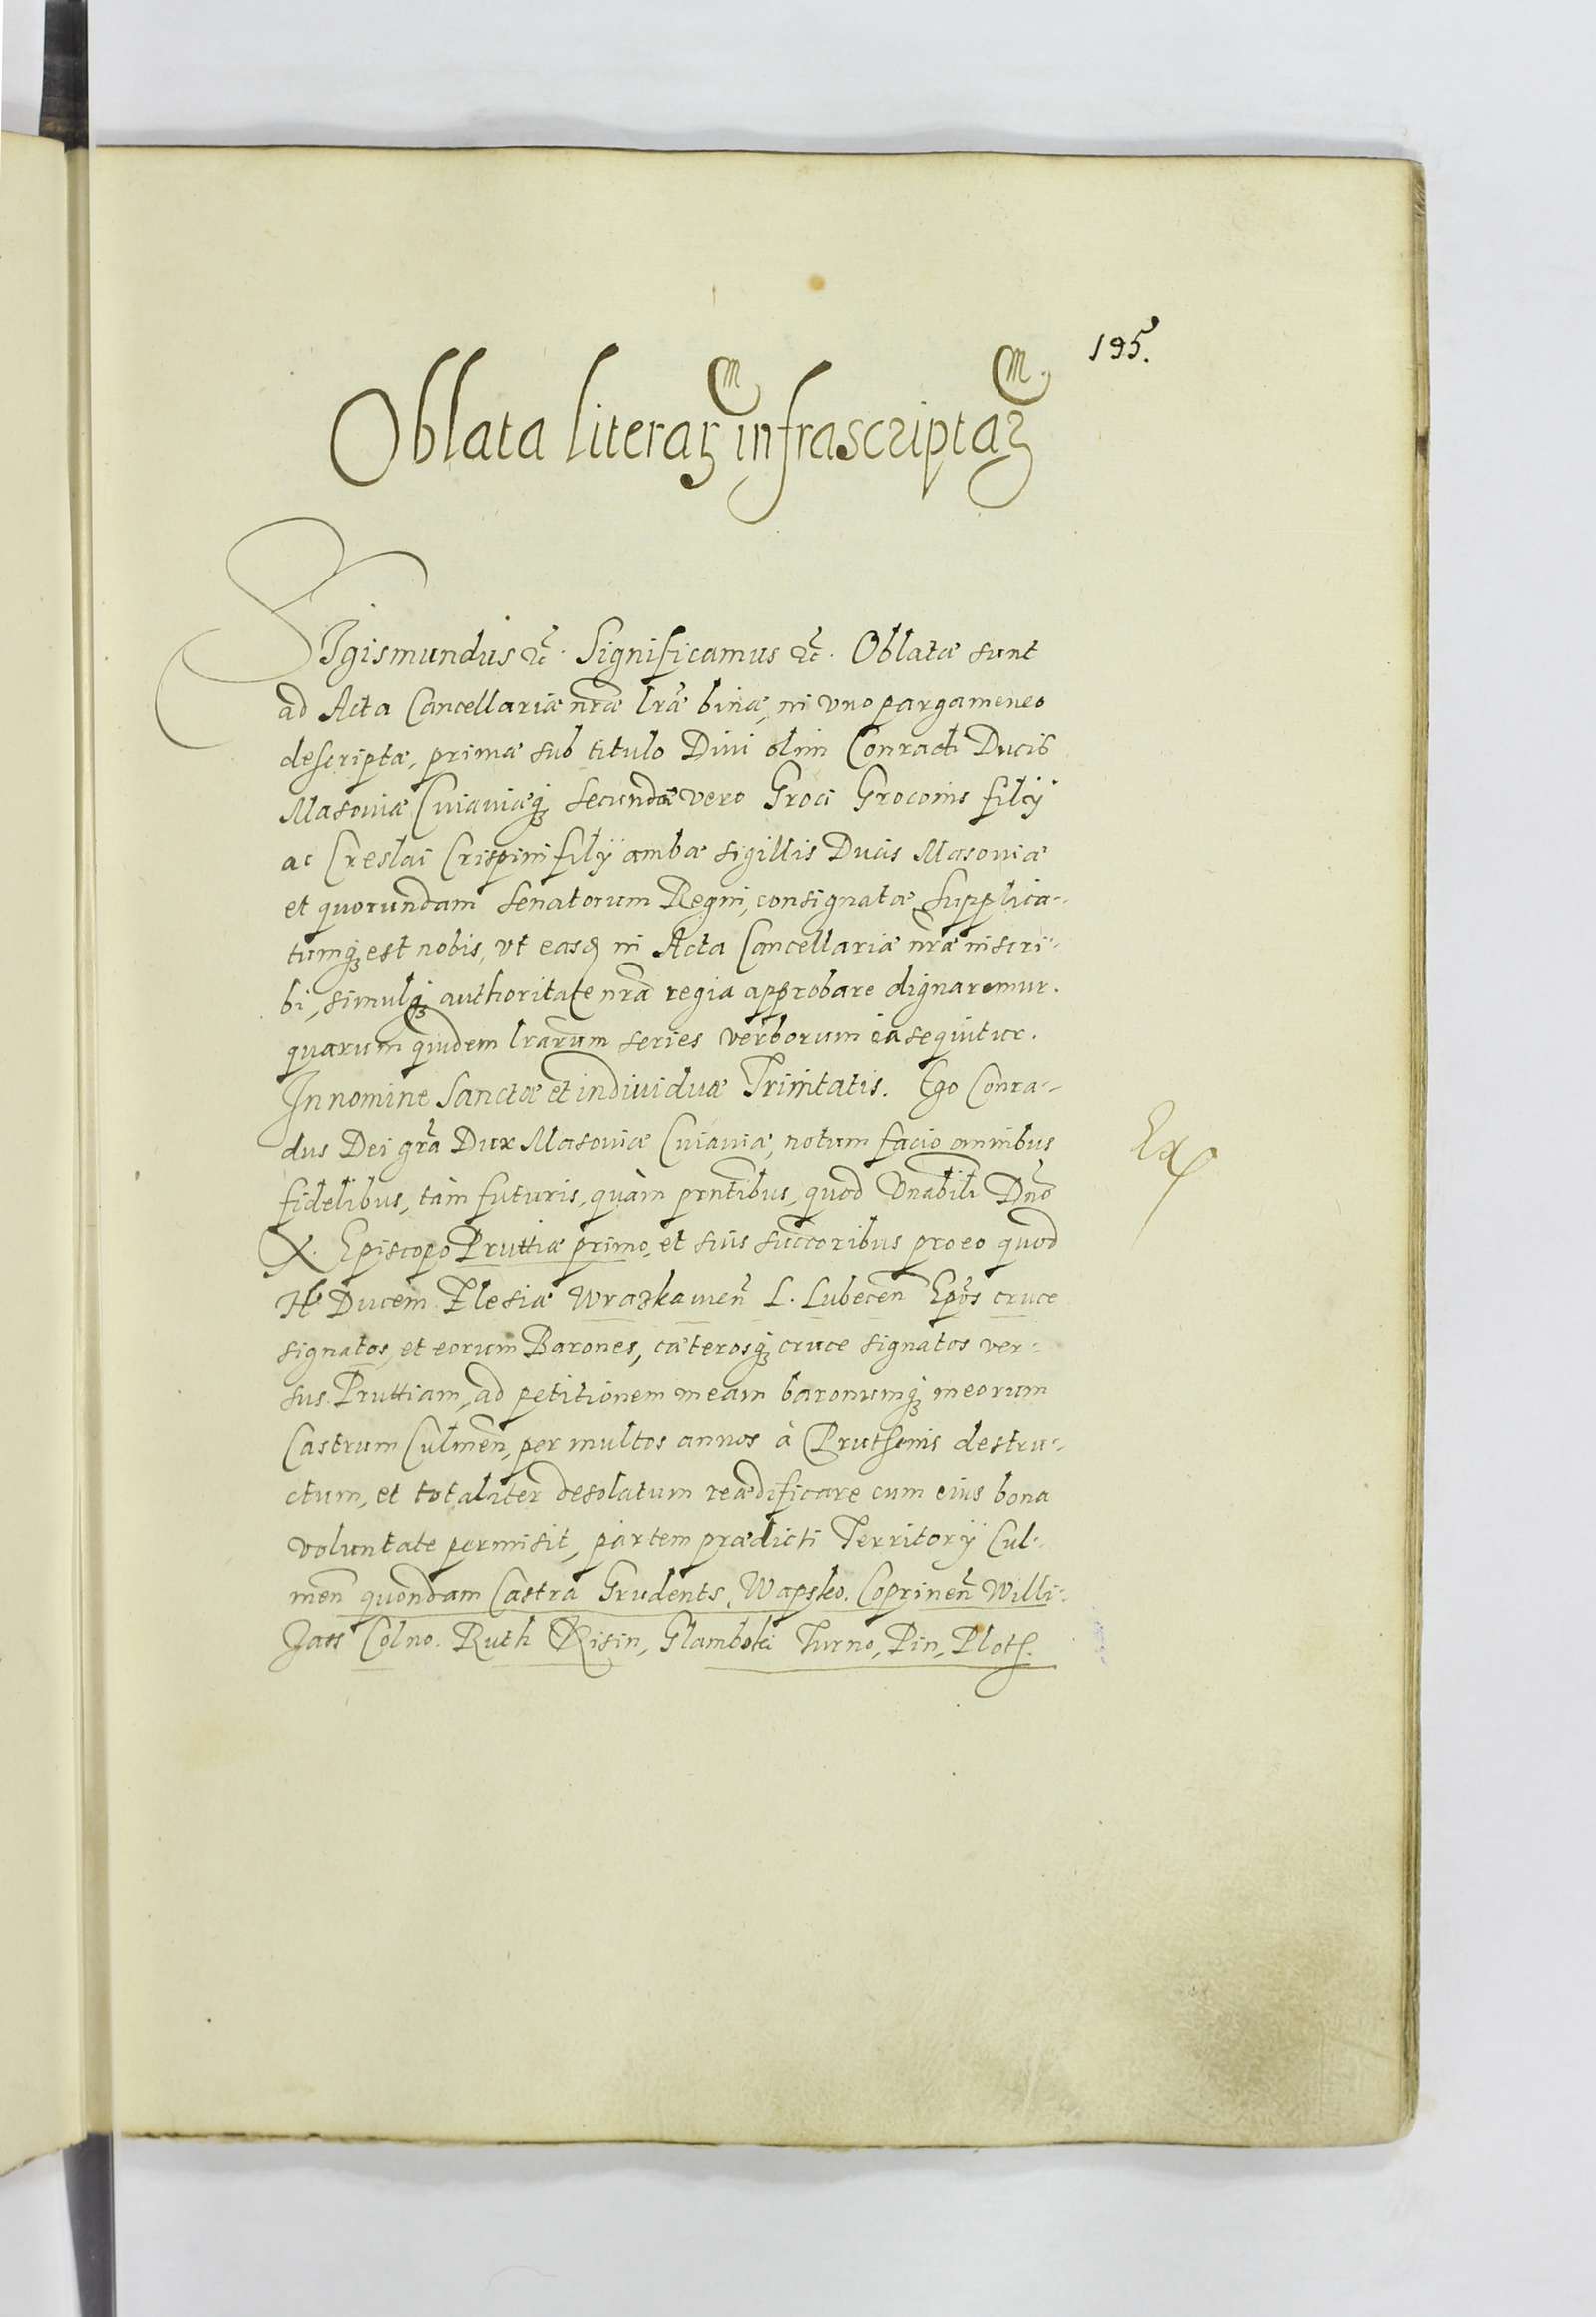 195.
Oblata literaꝝ infrascriptaꝝ
Sigismundus ꝛc̃. Significamus ꝛc̃. Oblatæ sunt
ad Acta Cancellariæ nr̃æ lr̃æ binæ, in vno pargameneo
descriptæ, primæ sub titulo Diui olim Conradi Ducis
Masouiæ Cuiauiæq́ꝫ secundæ vero Groci Groconis filij
ac Creslai Crispini filij ambæ sigillis Ducis Masouiæ
et quorundam Senatorum Regni, consignatæ, Supplica-
tumq́ꝫ est nobis, vt easd in Acta Cancellariæ nr̃æ inscri-
bi, simulq́ꝫ authoritate nr̃a regia approbare dignaremur.
quarum quidem lr̃arum series verborum ea sequitur.
In nomine Sanctæ et indiuiduæ Trinitatis. Ego Conra-
dus Dei gr̃a Dux Masouiæ Cuiauiæ, notum facio omnibus
fidelibus, tàm futuris, quàm prñtibus, quod Vnabili Dño
X. Episcopo Pruttiæ primo, et suis succoribus pro eo quod
H. Ducem Zlesiæ Wrazlauien̄ L. Lubecen̄ Ep̃os cruce
signatos, et eorum Barones, cæterosq́ꝫ cruce signatos ver-
sus Pruttiam, ad petitionem meam baronumq́ꝫ meorum
Castrum Culmen̄, per multos annos à Prutsenis destru-
ctum, et totaliter desolatum reædificare cum eius bona
voluntate permisit, partem prædicti Territorij Cul-
men̄ quondam Castra Grudents, Wapsko. Coprinen̄ Willi-
Jass Colno. Ruth Risin, Glamboki Turno, Pin, Plots.